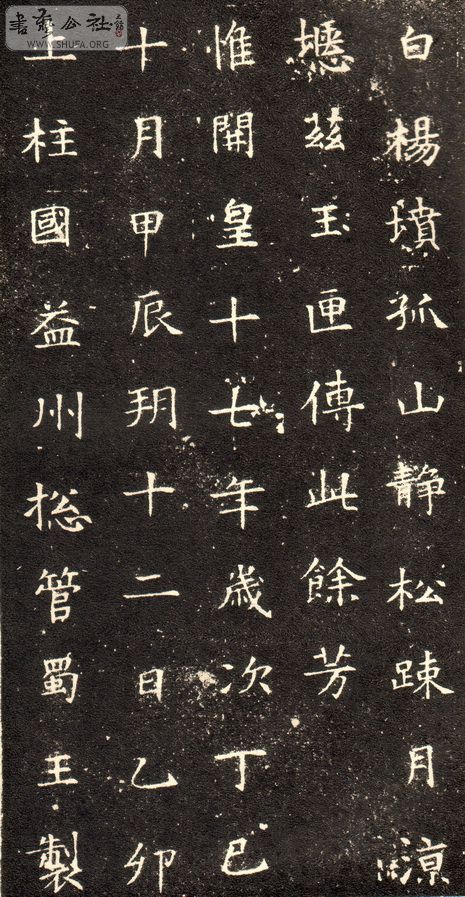 白楊墳孤山静松踈月涼
茲玉匣傳此餘芳
惟開皇十七年歲次丁巳
十月甲辰朔十二日乙卯
上柱國益州捴管蜀王製
書藝公社
WWW.SHUFA.ORG